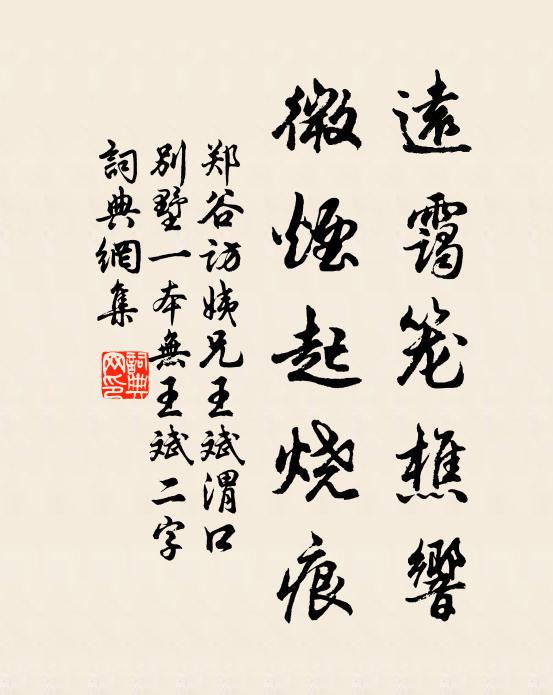 遠靄笼樵響
微煙起烧痕
郑谷访姨兄王斌渭口
別墅一本無王斌二字
詞典網集
詞典网印